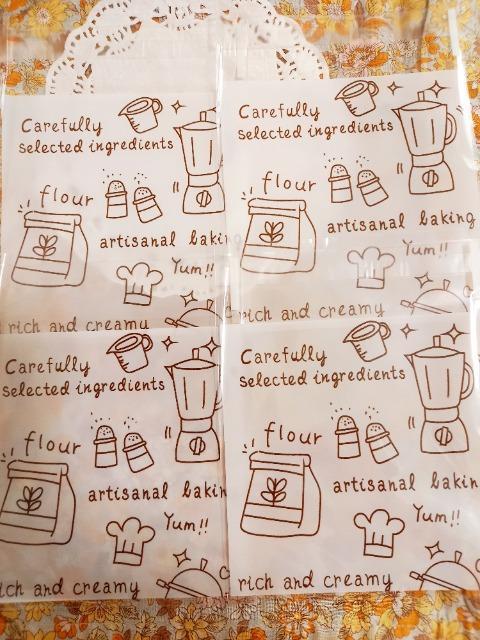 Carefully
selected ingredients
flour
artisanal bakin
Yum!!
rich and creamy
Carefully
selected ingredients
flour
artisanal baking
Yum!!
rich and creamy
Carefully
selected ingredients
flour
artisanal bakin
Yum!!
ich and creamy
Carefully
selected ingredients
flour
artisanal bakin
Yum!!
rich and creamy